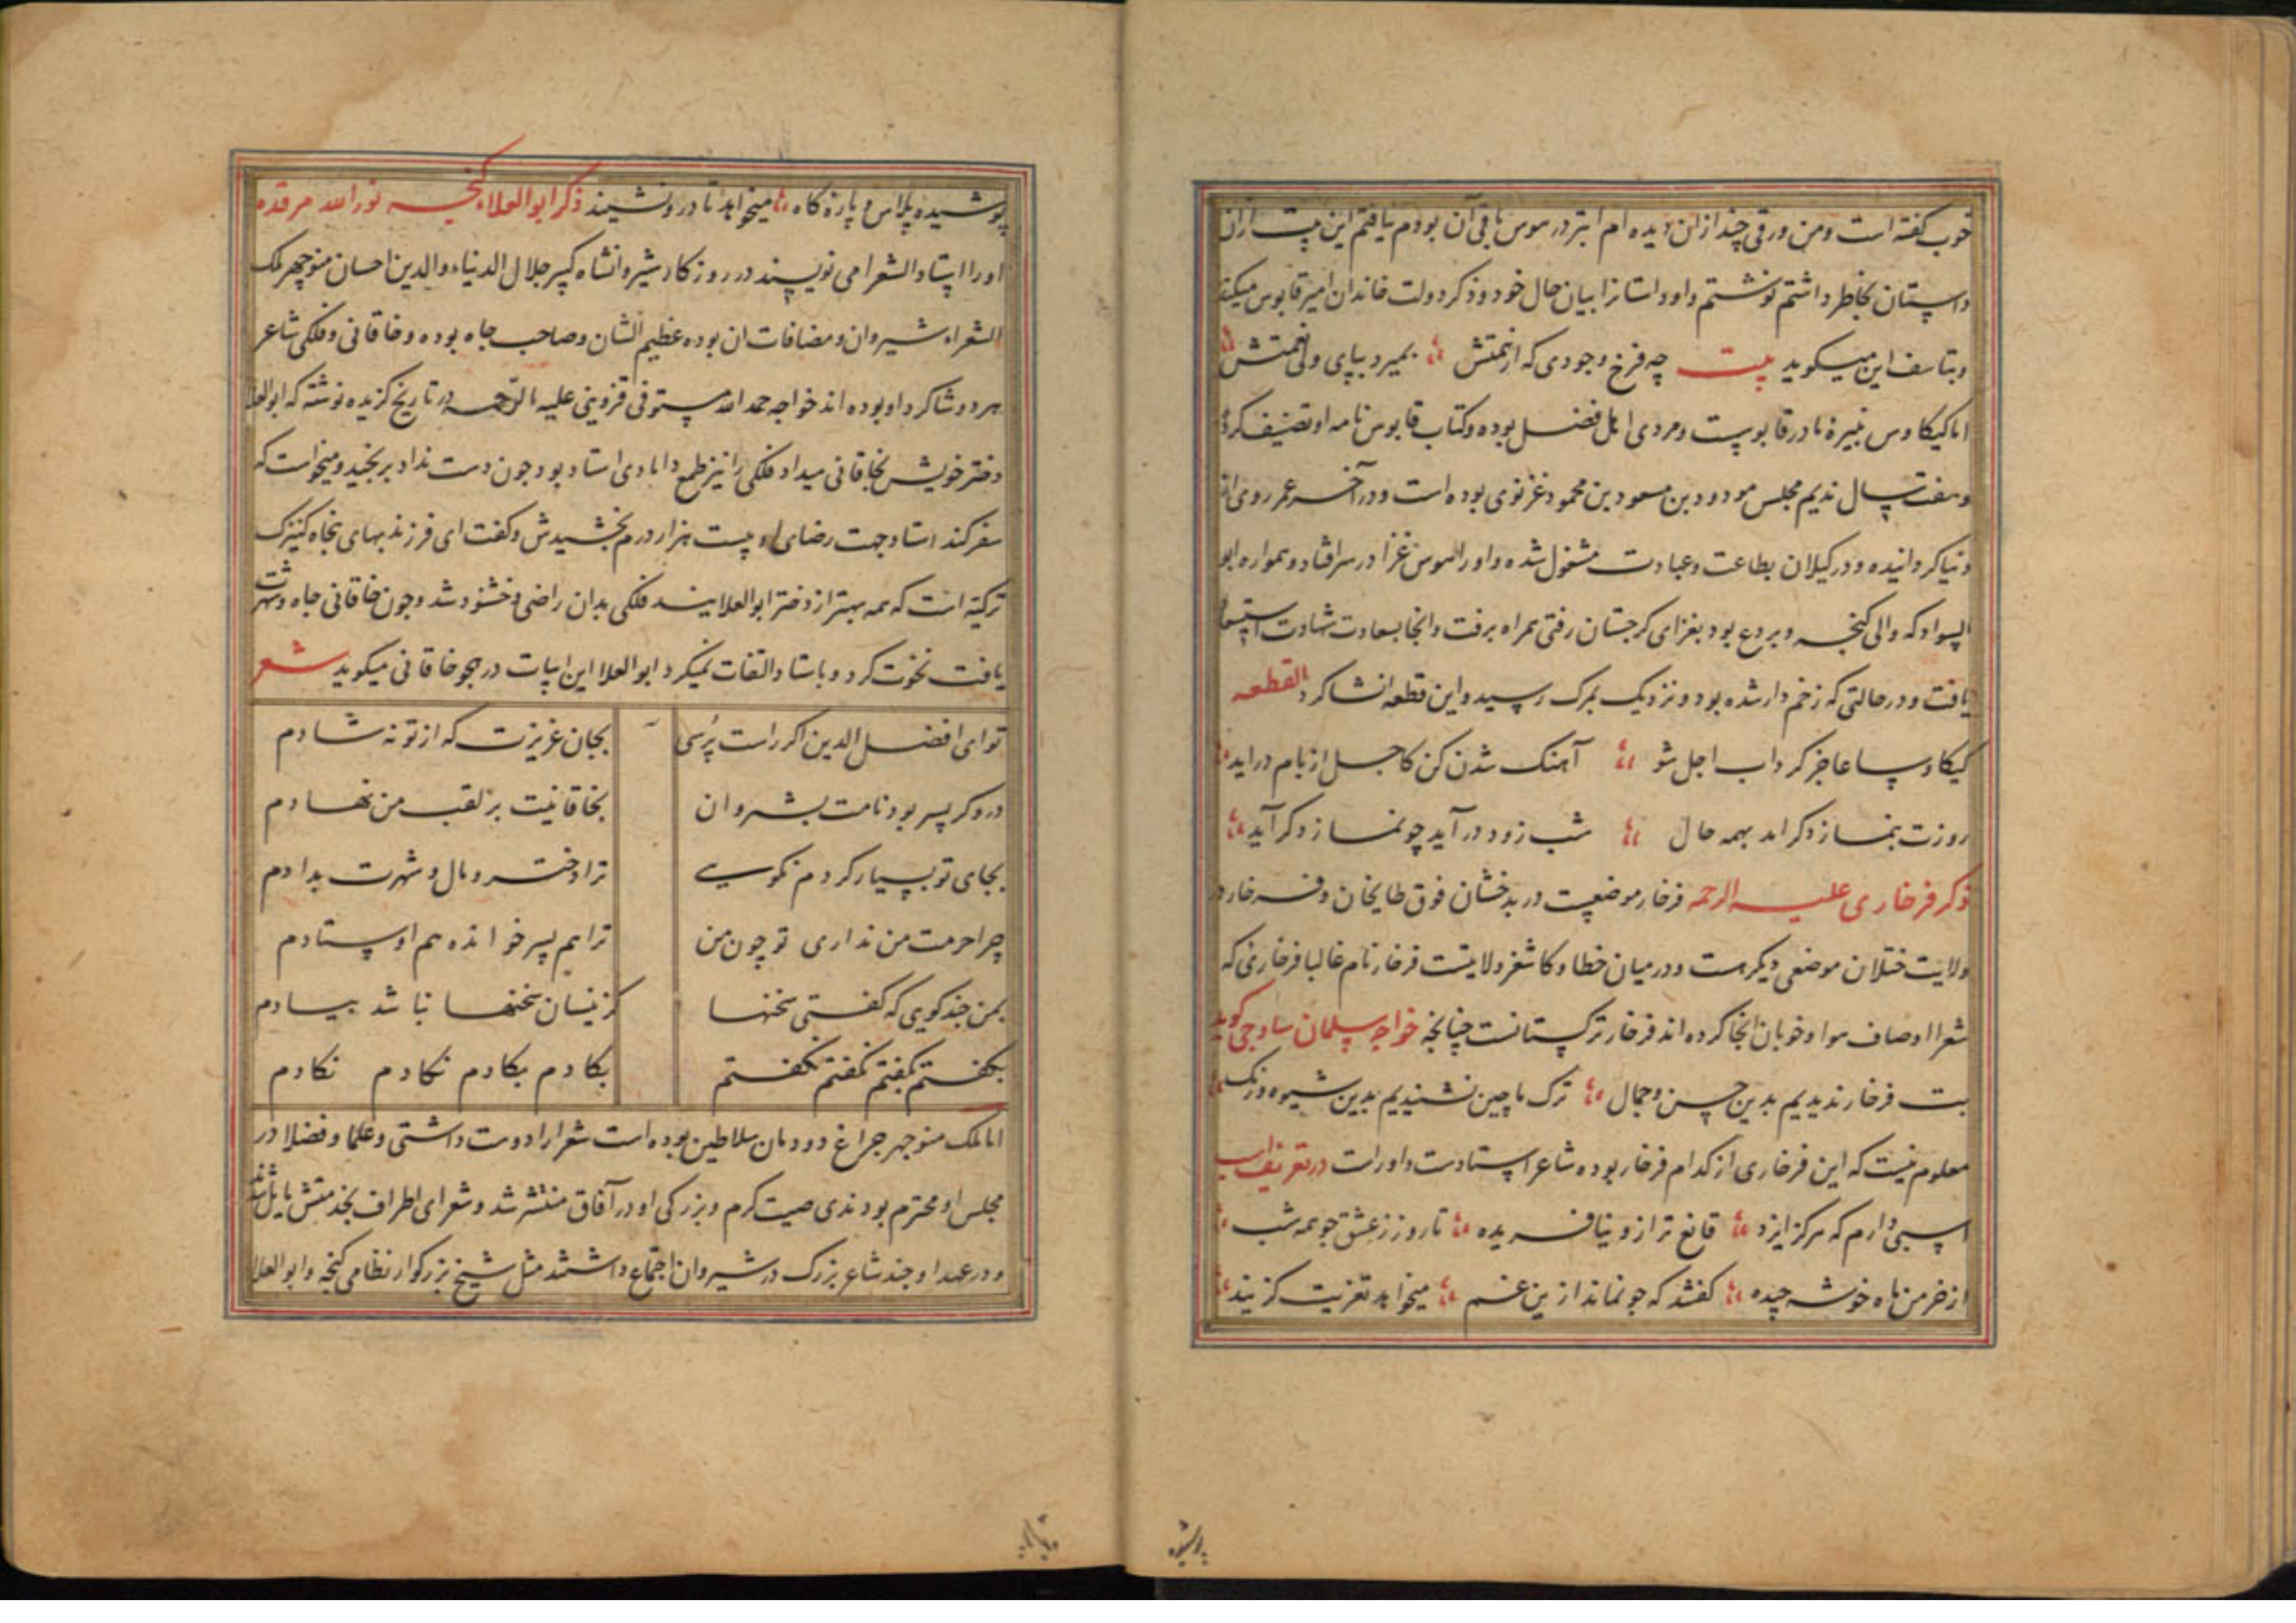 خوب کفته است ومن ورقی چند ازان دیده ام ابتر در هوس باقی آن بودم نیافتم این بیت ازان
داستان بخاطر داشتم نوشتم واو داستانرا بیان حال خود وذکر دولت خاندان امیر قابوس میکند
وبتاسف این میکوید بیت چه فرخ وجودی که از همتش بمیرد بپای ولی نعمتش
اما کیکاوس نبیرۀ مادر قابوست ومردی اهل فضل بوده وکتاب قابوس نامه او تصنیف کرده
وهفت سال ندیم مجلس مودود بن مسعود بن محمود غزنوی بوده است ودر آخر عمر روی از
دنیا کردانیده ودر کیلان بطاعت وعبادت مشغول شده واورا هوس غزا در سر افتاد وهمواره ابو
السواد که والی کنجه وبردع بود بغزای کرجستان رفتی همراه برفت وانجا بسعادت شهادت استسعاد
یافت ودر حالتی که زخم دار شده بود ونزدیک بمرک رسید واین قطعه انشا کرد القطعه
کیکاوسا عاجز کرداب اجل شو آهنک شدن کن کاجل از بام دراید
روزت بنماز دکر امد بهمه حال شب زود درآید چو نماز دکر آید
ذکر فرخاری علیه الرحمه فرخار موضعیست در بدخشان فوق طایخان وفرخار در
ولایت ختلان موضعی دیکر هست ودر میان خطا وکاشغر ولایتیست فرخار نام غالبا فرخاری که
شعرا اوصاف هوا وخوبان انجا کرده اند فرخار ترکستانست چنانچه خواجه سلمان ساوجی کوید
بت فرخار ندیدیم بدین حسن وجمال ترک ماچین نشنیدیم بدین شیوه ورنک
معلوم نیست که این فرخاری از کدام فرخار بوده شاعر استادست واوراست درتعریف اسب
اسبی دارم که هرکز ایزد قانع تر ازو نیافریده تا روز ز عشق جو همه شب
از خرمن ماه خوشه چیده کفتند که جو نماند ازین غم میخواهد تعزیت کزیند
پوشیده
پوشیده پلاس وپارۀ کاه میخواهد تا درو نشیند ذکر ابو العلاء کنجه نور الله مرقده
اورا استاد الشعرا می نویسند در روزکار شیروانشاه کبیر جلال الدنیاء والدین اخستان منوچهر ملک
الشعراء شیروان ومضافات ان بوده عظیم الشان وصاحب جاه بوده وخاقانی وفلکی شاعر
هر دو شاکرد او بوده اند خواجه حمد الله مستوفی قزوینی علیه الرحمه در تاریخ کزیده نوشته که ابو العلا
دختر خویش بخاقانی میداد فلکی را نیز طمع دامادی استاد بود چون دست نداد برنجید ومیخواست که
سفر کند استاد جهت رضای او بیست هزار درم بخشیدش وکفت ای فرزند بهای پنجاه کنیزک
ترکیه است که همه بهتر از دختر ابو العلایند فلکی بدان راضی وخشنود شد وچون خاقانی جاه وشهرت
یافت نخوت کرد وباستاد التفات نمیکرد ابو العلا این ابیات در هجو خاقانی میکوید شعر
تو ای افضل الدین اکر راست پرسی بجان عزیزت که از تو نه شادم
دروکر پسر بود نامت بشروان بخاقانیت بر لقب من نهادم
بجای تو بسیار کردم نکویی ترا دختر ومال وشهرت بدادم
چرا حرمت من نداری تو چون من ترا هم پسر خوانده هم اوستادم
بمن چند کویی که کفتی سخنها کزینسان سخنها نباشد بیادم
بکفتم بکفتم نکفتم نکفتم بکادم بکادم نکادم نکادم
اما ملک منوچهر چراغ دودمان سلاطین بوده است شعرا را دوست داشتی وعلما وفضلا در
مجلس او محترم بودندی صیت کرم وبزرکی او در آفاق منتشر شد وشعرای اطراف بخدمتش مایل شدند
ودر عهد او چند شاعر بزرک در شیروان اجتماع داشتند مثل شیخ بزرکوار نظامی کنجه وابو العلا